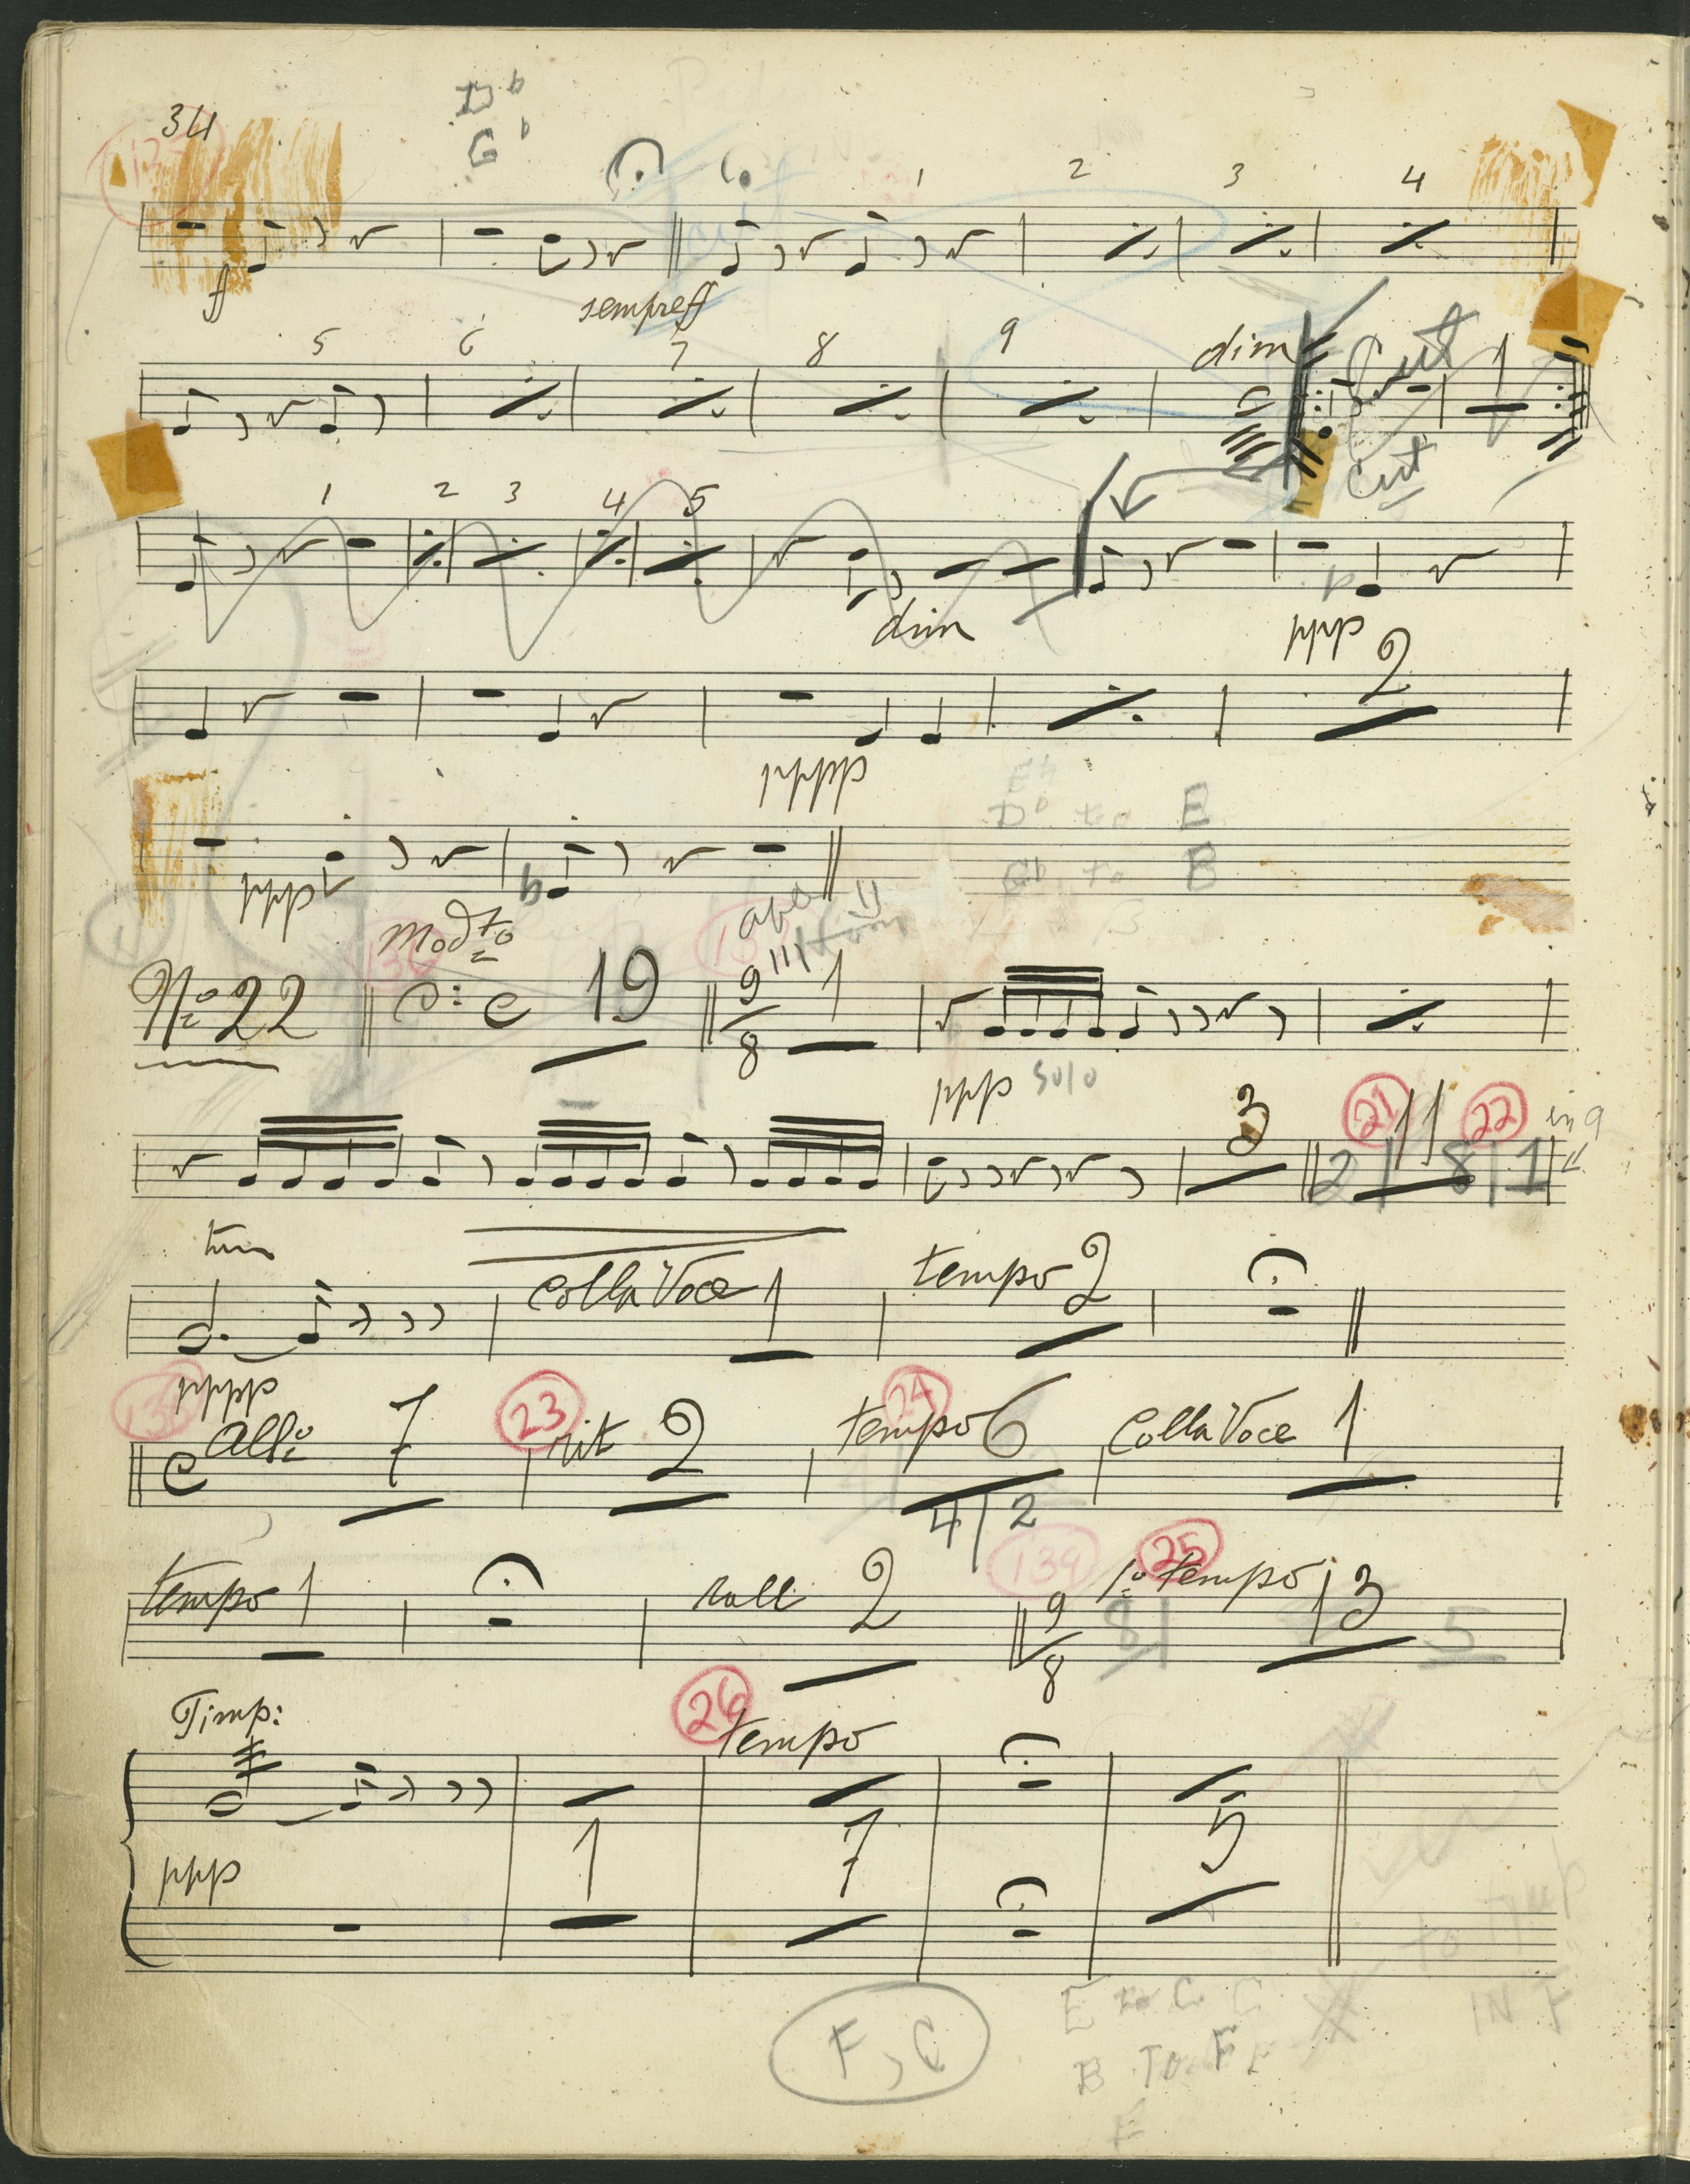 34
D♭
G♭
1 2 3 4
ff sempre ff
5 6 7 8 9 dim
Cut
1 2 3 4 5
dim ppp
2
pppp
E♮
D♭ to E
G♭ to B
ppp
Modto
No 22 C 19 9/8 1
ppp solo
3 21 11 22 in 9
2 8 1
colla Voce 1 tempo 2
pppp
C Allo 7 23 rit 2 24 tempo 6 Colla Voce 1
4 2
139 25
tempo 1 rall 2 9/8 1o tempo 13
8 5
Timp: 26 tempo
1 7 5
ppp
F, C
E to C
B TO F
IN F